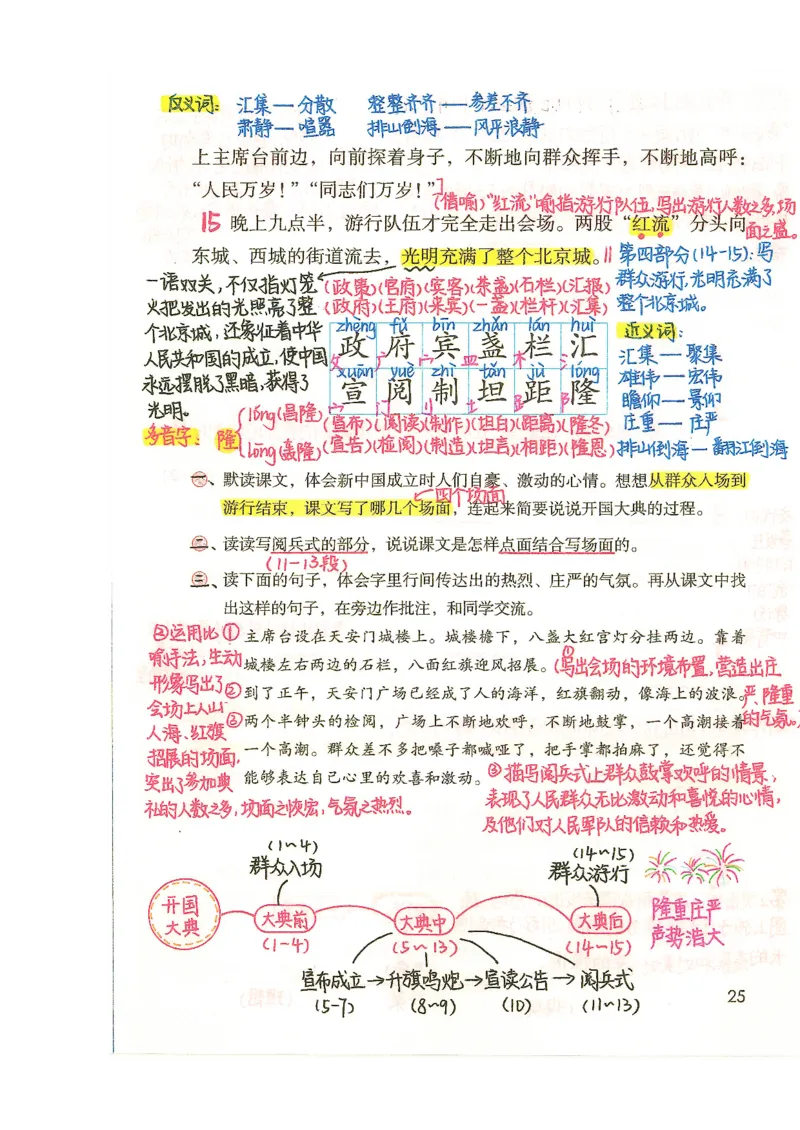 反义词: 汇集—分散 整整齐齐—参差不齐
肃静—喧嚣 排山倒海—风平浪静
上主席台前边，向前探着身子，不断地向群众挥手，不断地高呼：
“人民万岁！”“同志们万岁！”]
(借喻)“红流”喻指游行队伍,写出游行人数之多,场面之盛。
15 晚上九点半，游行队伍才完全走出会场。两股“红流”分头向
东城、西城的街道流去，光明充满了整个北京城。//
第四部分(14-15):写
群众游行,光明充满了
整个北京城。
一语双关,不仅指灯笼
火把发出的光照亮了整
个北京城,还象征着中华
人民共和国的成立,使中国
永远摆脱了黑暗,获得了
光明。
(政策)(官府)(宾客)(茶盏)(石栏)(汇报)
(政府)(王府)(来宾)(一盏)(栏杆)(汇集)
zhèng fǔ bīn zhǎn lán huì
政 府 宾 盏 栏 汇
攵 广 宀 皿 木 氵
xuān yuè zhì tǎn jù lóng
宣 阅 制 坦 距 隆
宀 门 刂 土 𧾷 阝
(宣布)(阅读)(制作)(坦白)(距离)(隆冬)
(宣告)(检阅)(制造)(坦言)(相距)(隆恩)
近义词:
汇集—聚集
雄伟—宏伟
瞻仰—景仰
庄重—庄严
排山倒海—翻江倒海
多音字: 隆
lóng(昌隆)
lōng(轰隆)
一、默读课文，体会新中国成立时人们自豪、激动的心情。想想从群众入场到
四个场面
游行结束，课文写了哪几个场面，连起来简要说说开国大典的过程。
二、读读写阅兵式的部分，说说课文是怎样点面结合写场面的。
(11-13段)
三、读下面的句子，体会字里行间传达出的热烈、庄严的气氛。再从课文中找
出这样的句子，在旁边作批注，和同学交流。
① 主席台设在天安门城楼上。城楼檐下，八盏大红宫灯分挂两边。靠着
城楼左右两边的石栏，八面红旗迎风招展。
(①写出会场的环境布置,营造出庄
严、隆重
的气氛。)
② 到了正午，天安门广场已经成了人的海洋，红旗翻动，像海上的波浪。
③ 两个半钟头的检阅，广场上不断地欢呼，不断地鼓掌，一个高潮接着
一个高潮。群众差不多把嗓子都喊哑了，把手掌都拍麻了，还觉得不
能够表达自己心里的欢喜和激动。
②运用比
喻手法,生动
形象写出了
会场上人山
人海、红旗
招展的场面,
突出了参加典
礼的人数之多,场面之恢宏,气氛之热烈。
③描写阅兵式上群众鼓掌欢呼的情景,
表现了人民群众无比激动和喜悦的心情,
及他们对人民军队的信赖和热爱。
(1~4)
群众入场
(14~15)
群众游行
开国
大典
大典前
(1-4)
大典中
(5~13)
大典后
(14~15)
隆重庄严
声势浩大
宣布成立→升旗鸣炮→宣读公告→阅兵式
(5-7) (8~9) (10) (11~13)
25